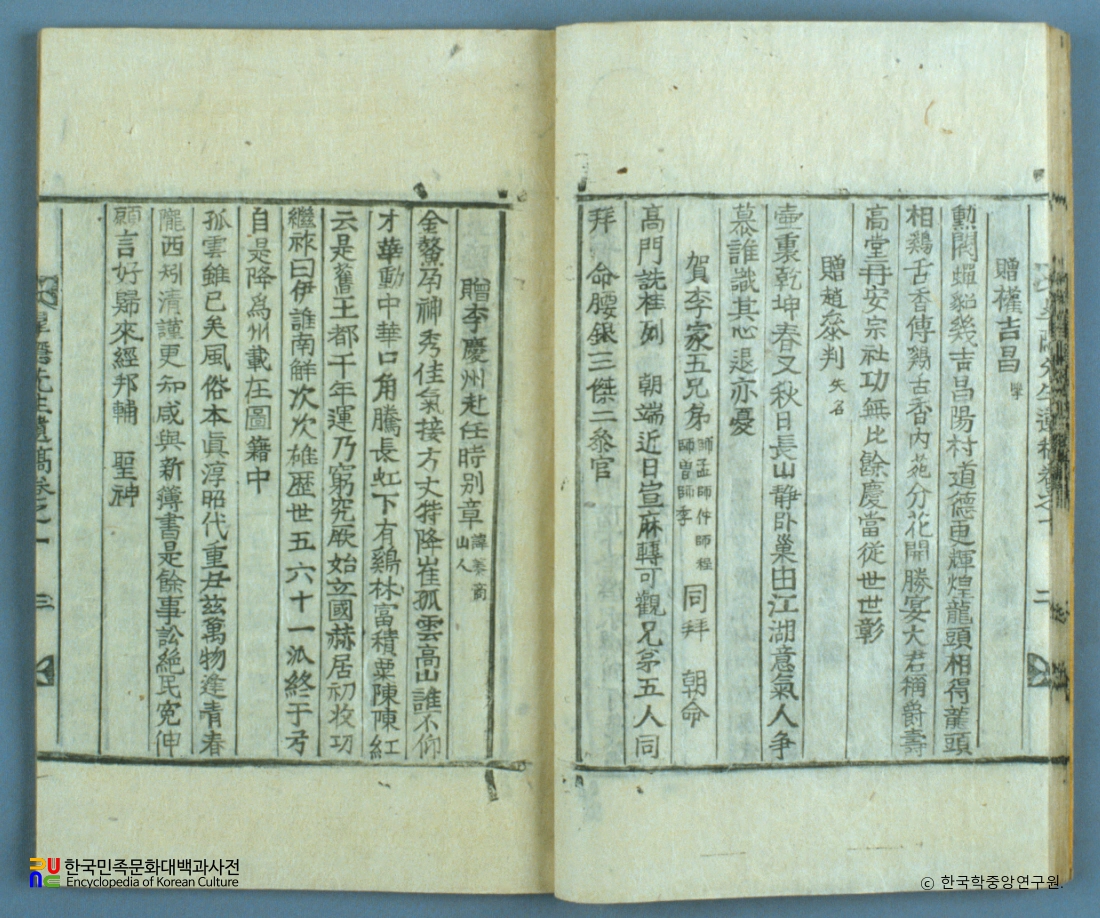 贈權吉昌
勲閥蟬貂幾吉昌陽村道德更輝煌龍頭相得龍頭
相鷄舌香傳鷄古香內苑分花開勝宴大君稱爵壽
高堂再安宗社功無比餘慶當從世世彰
贈趙叅判 失名
壺裏乾坤春又秋日長山静卧巢由江湖意氣人争
慕誰識其心退亦憂
賀李家五兄弟 師孟師仲師程師曽師季 同拜 朝命
高門詵桂列 朝端近日宣麻轉可觀兄弟五人同
拜 命腰銀三傑二叅官
贈李慶州赴任時别章 山人
金鰲孕神秀佳氣接方丈特降崔孤雲高山誰不仰
才華動中華口角騰長虹下有鷄林富積粟陳陳紅
云是舊王都千年運乃窮究厥始立國赫居初收功
繼祚曰伊誰南解次次雄歴世五六十一派終于
自是降為州載在圖籍中
孤雲雖已矣風俗本眞淳昭代重丑玆萬物逢青春
隴西躬清謹更知咸與新簿書是餘事訟絶民寃伸
願言好歸來經邦輔 聖神
先生遺稿卷之一 三